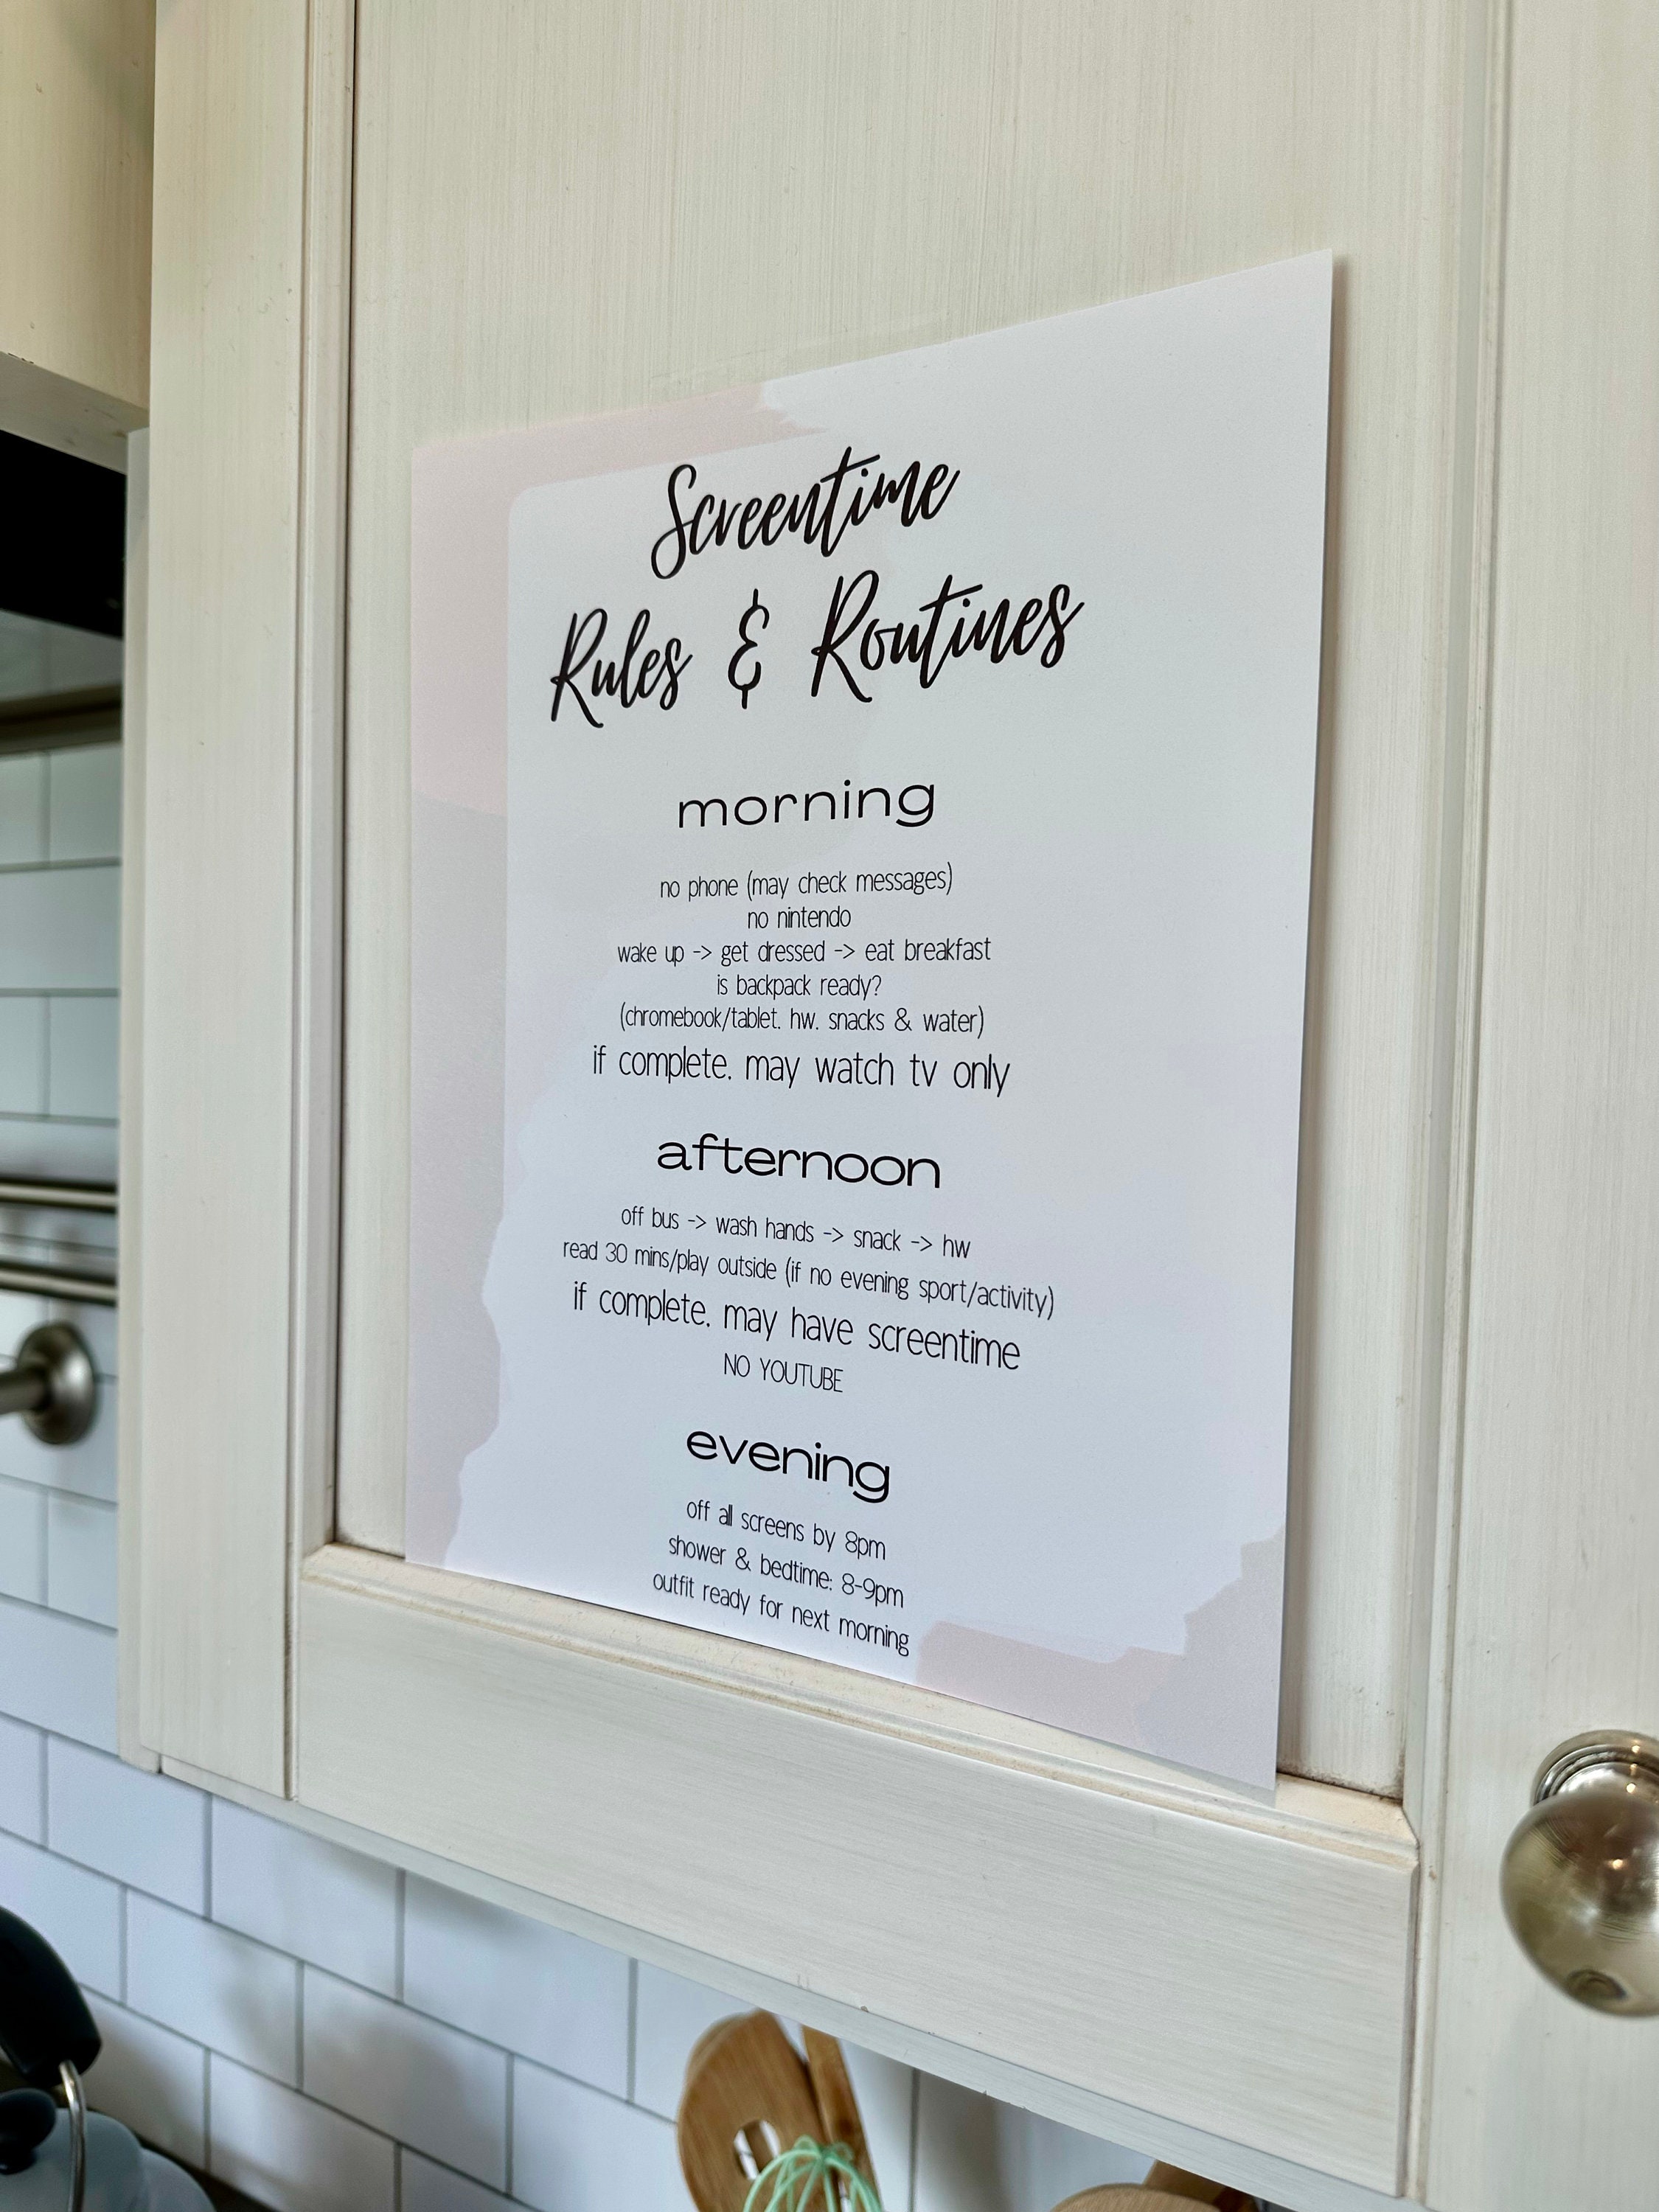 Screentime
Rules & Routines
morning
no phone (may check messages)
no nintendo
wake up -> get dressed -> eat breakfast
is backpack ready?
(chromebook/tablet, hw, snacks & water)
if complete, may watch tv only
afternoon
off bus -> wash hands -> snack -> hw
read 30 mins/play outside (if no evening sport/activity)
if complete, may have screentime
NO YOUTUBE
evening
off all screens by 8pm
shower & bedtime: 8-9pm
outfit ready for next morning